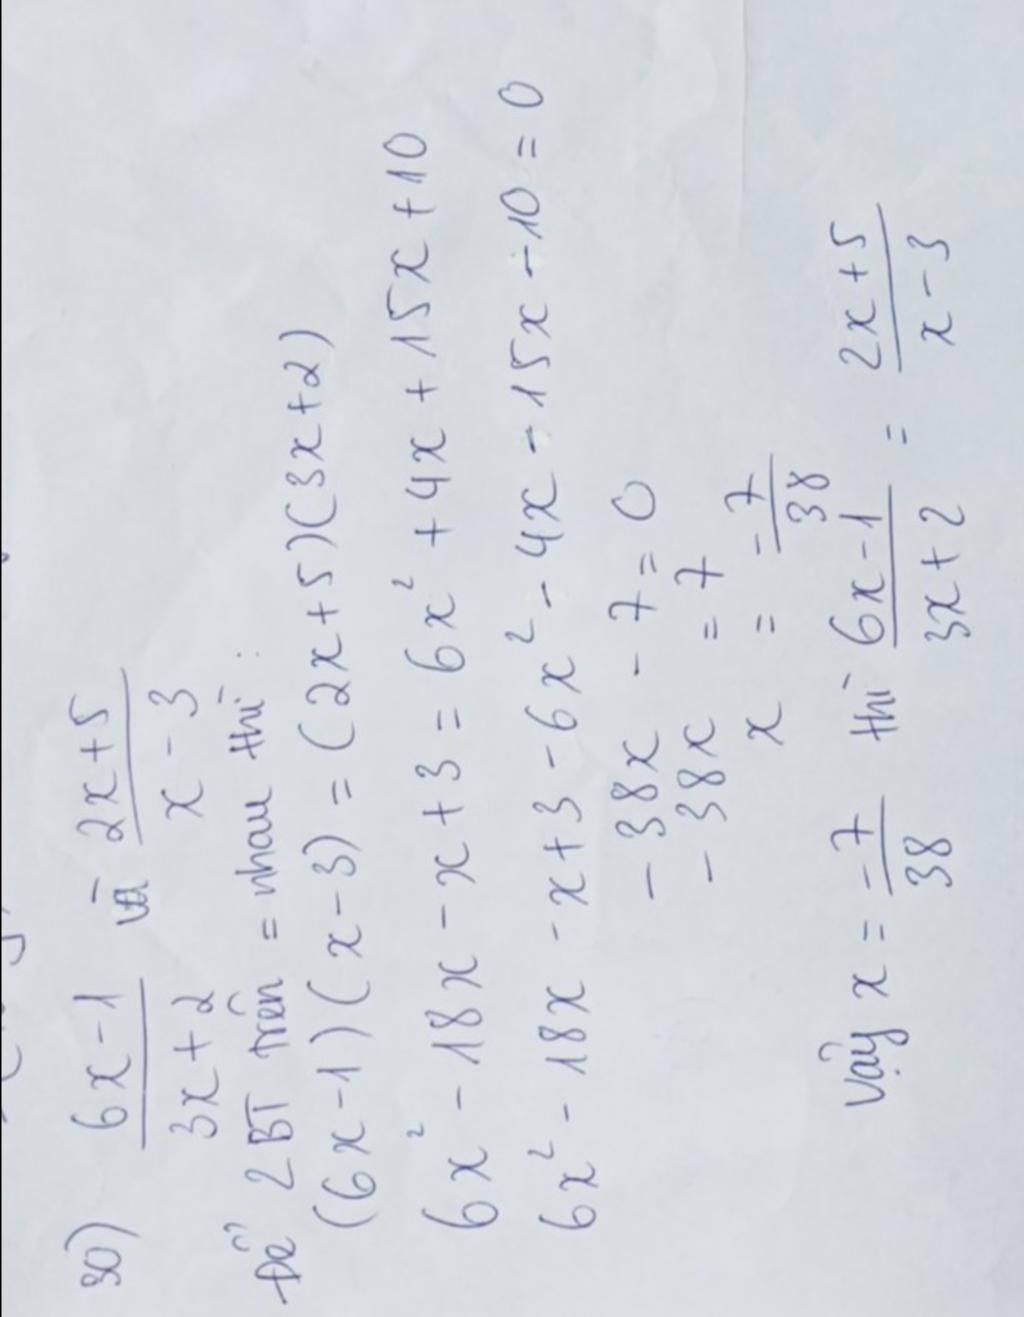 30) \frac{6x-1}{3x+2} và \frac{2x+5}{x-3}
Để 2 BT trên = nhau thì:
(6x-1)(x-3) = (2x+5)(3x+2)
6x² - 18x - x + 3 = 6x² + 4x + 15x + 10
6x² - 18x - x + 3 - 6x² - 4x - 15x - 10 = 0
- 38x - 7 = 0
- 38x = 7
x = \frac{-7}{38}
Vậy x = \frac{-7}{38} thì \frac{6x-1}{3x+2} = \frac{2x+5}{x-3}